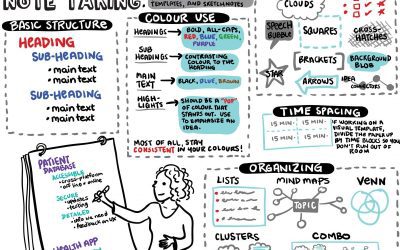 NOTE TAKING:
TEMPLATES, AND SKETCHNOTES
BASIC STRUCTURE
HEADING
SUB-HEADING
• main text
• main text
SUB-HEADING
• main text
• main text
COLOUR USE
HEADINGS → BOLD, ALL-CAPS,
RED, BLUE, GREEN,
PURPLE
SUB
HEADINGS → CONTRASTING
COLOUR TO THE
HEADING
MAIN
TEXT → BLACK, BLUE, BROWN
HIGH-
LIGHTS → SHOULD BE A "POP"
OF COLOUR THAT
STANDS OUT. USE
TO EMPHASIZE AN
IDEA.
MOST OF ALL, STAY
CONSISTENT IN YOUR COLOURS!
CLOUDS
SPEECH
BUBBLE
SQUARES
CROSS-
HATCHES
STAR
BRACKETS
BACKGROUND
BLOB
ARROWS
IDEA
CONNECTORS
TIME SPACING
15 MIN 15 MIN
15 MIN 15 MIN
IF WORKING ON A
VISUAL TEMPLATE,
DIVIDE THE PAPER UP
BY TIME BLOCKS SO YOU
DON'T RUN OUT OF
ROOM
PATIENT
DATABASE
ACCESSIBLE
• cross-platform
• off line + online
SECURE
• updates
• testing
DETAILED
• info we need
• feedback on UX
HEALTH APP
ORGANIZING
LISTS
MIND MAPS
VENN
TOPIC
CLUSTERS
COMBO